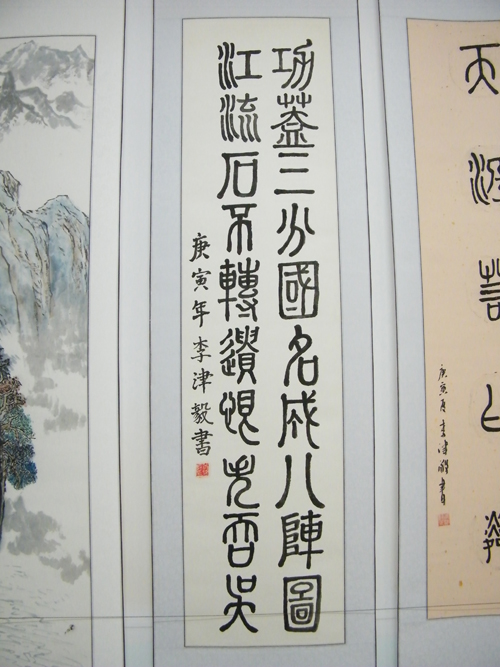 天涯
庚寅夏李津毅書
功蓋三分國名成八陣圖
江流石不轉遺恨失吞吴
庚寅年李津毅書